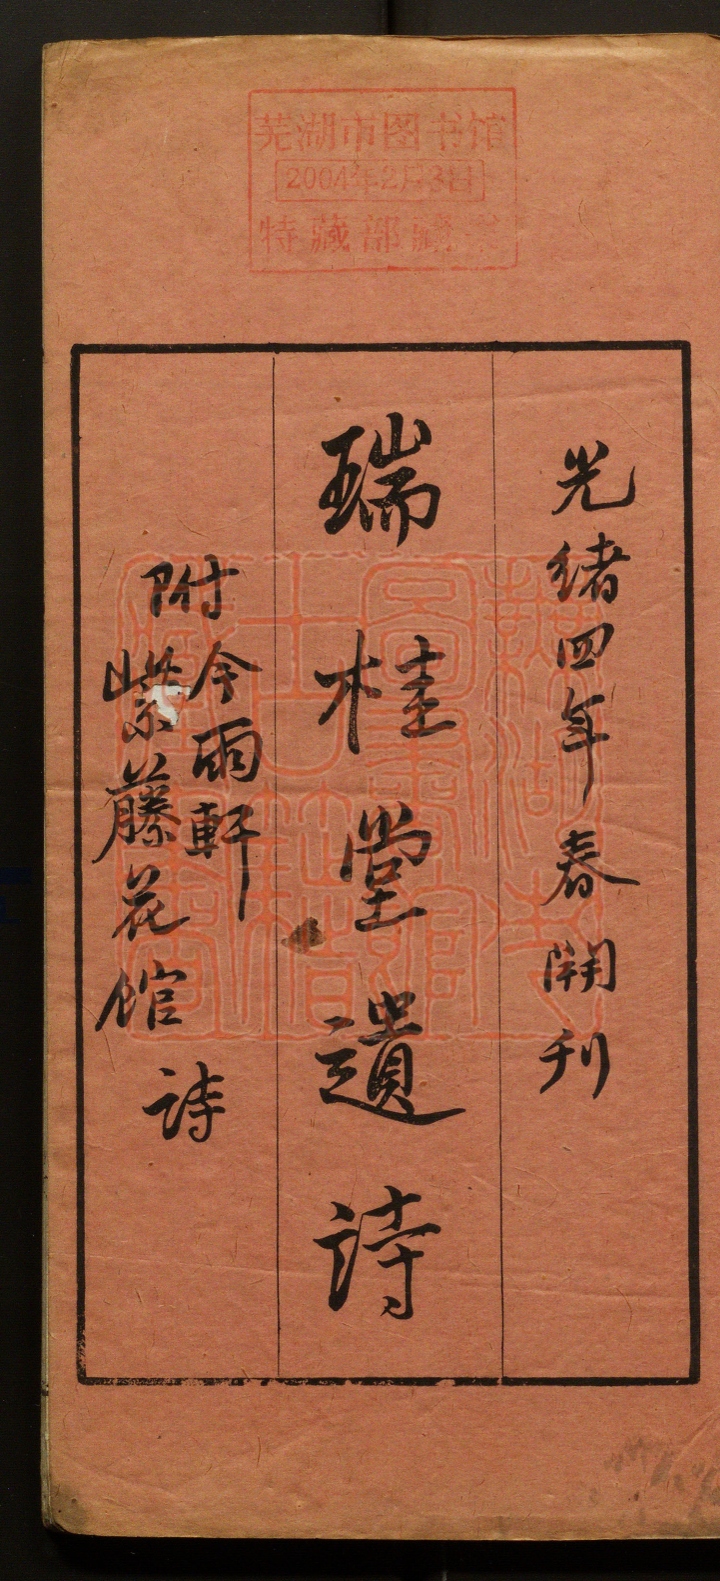 芜湖市图书馆
2004年2月3日
特藏部藏书
光緒四年春開刊
瑞桂堂遺詩
附今雨軒
紫藤花館詩